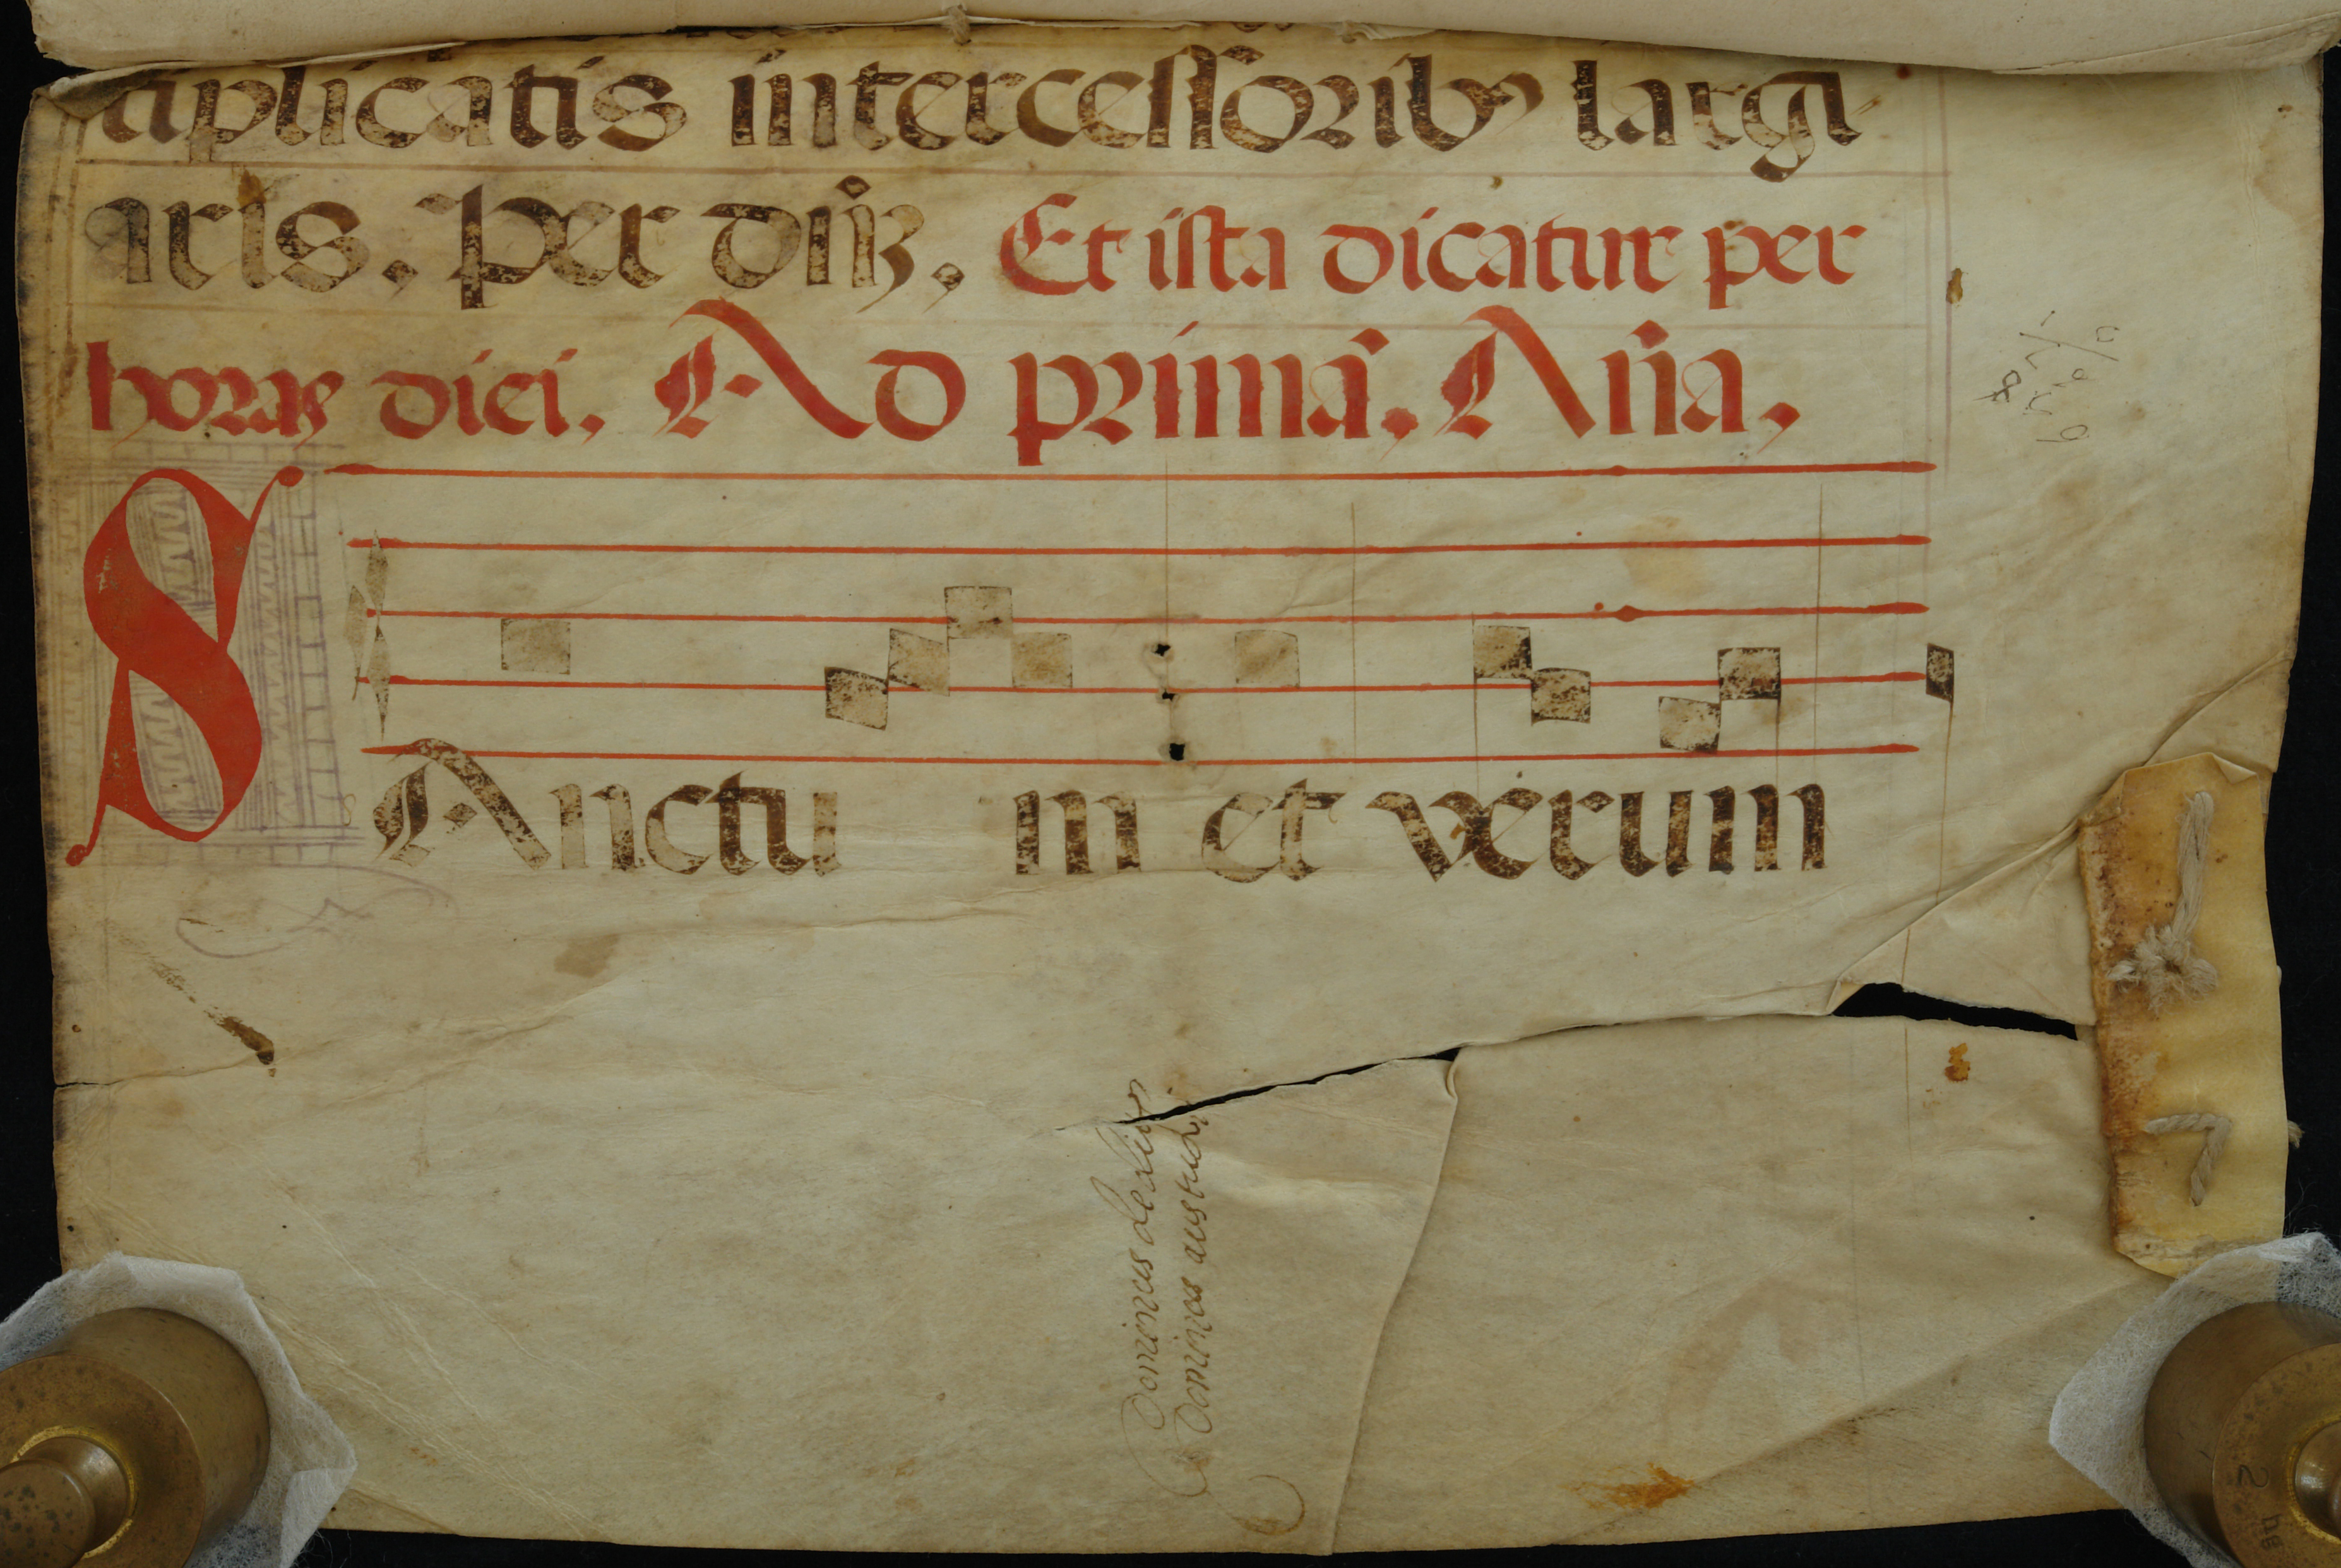 tiplicatis intercessoribꝰ largi
aris. Per dn̄ꝫ. Et ista dicatur per
horas diei. Ad primā. An̄a.
SAnctu m et verum
Dominus de
Dominos